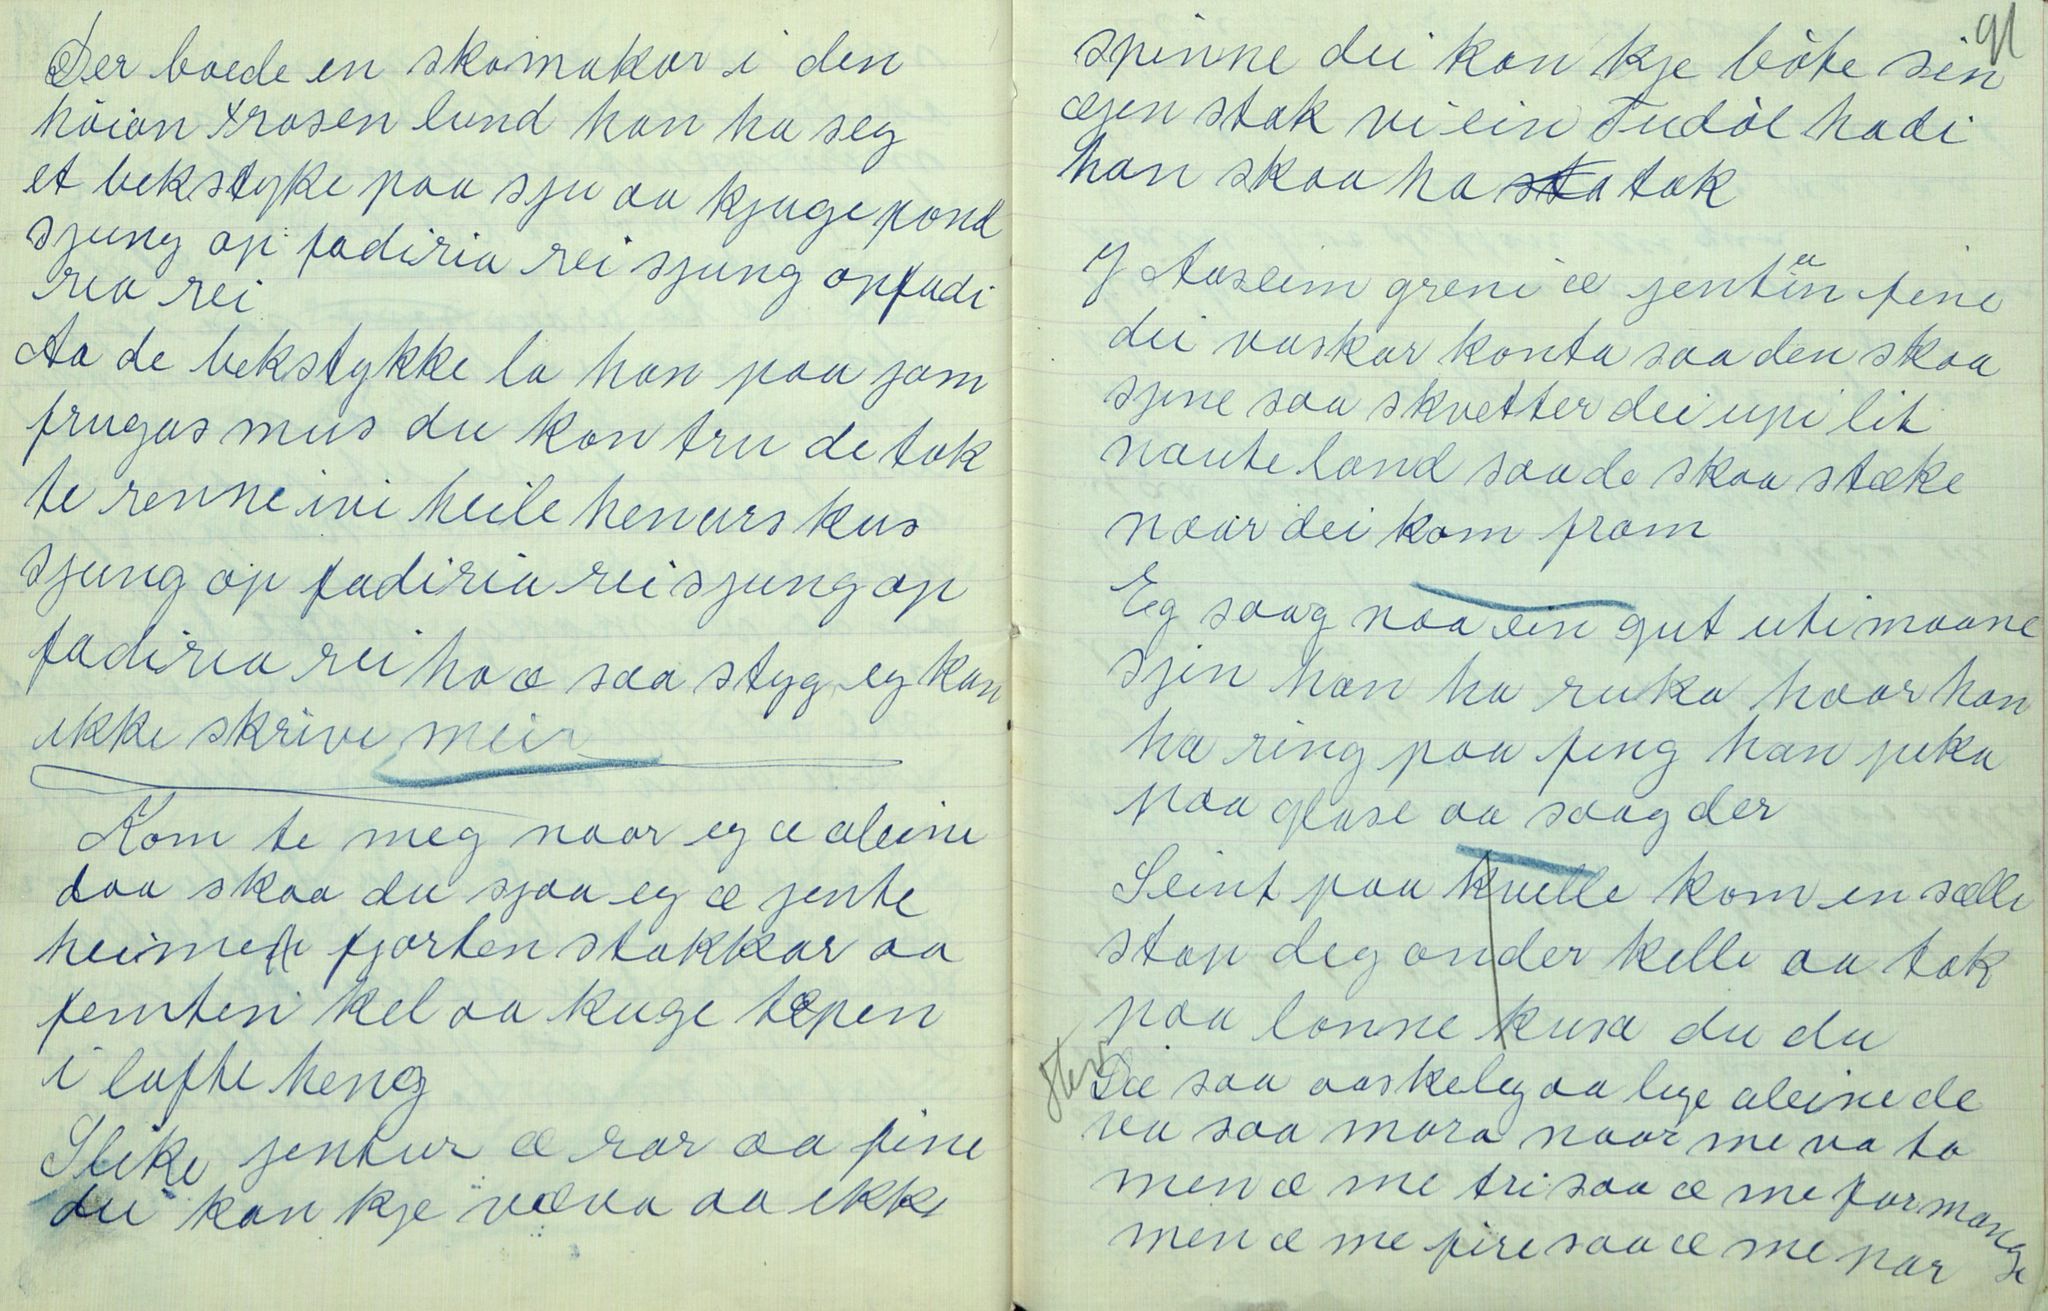 Der boede en skomakar i den
höian trosen lund han ha seg
et bekstyke paa sju aa kjuge pond
sjung op fadiria rei sjung op fadi
ria rei
Aa de bekstykke la han paa jom
frugas mus du kan tru de tok
te renne ivi heile henars kus
sjung op fadiria rei sjung op
fadiria rei ha æ saa styg eg kan
ikke skrive meir
Kom te meg naar eg æ aleine
daa skaa du sjaa eg æ jente
heime fjorten stakkar aa
femten kel aa kuge tæpen
i lofte heng
Slike jentur æ rar aa fine
dei kan kje væva aa ikke
91
spinne dei kan kje böte sin
æjen stak vi ein Tudöl hadi
han skaa ha tak
I Aasleim greni æ jentein fine
dei vaskar konta saa den skaa
sjine saa skvetter dei upi lit
naute land saa de skaa stæke
naar dei kom fram
Eg saag naa ein gut uti maane
sjin han ha ruka haar han
ha ring paa fing han peka
paa glase aa saag der
Seint paa kvelle kom en sælle
stap deg onder kelle aa tak
paa lonne kusa du du
De saa aaskeleg aa lige aleine de
va saa mora naar me va to
men æ me tri saa æ me for mange
men æ me fire saa æ me par